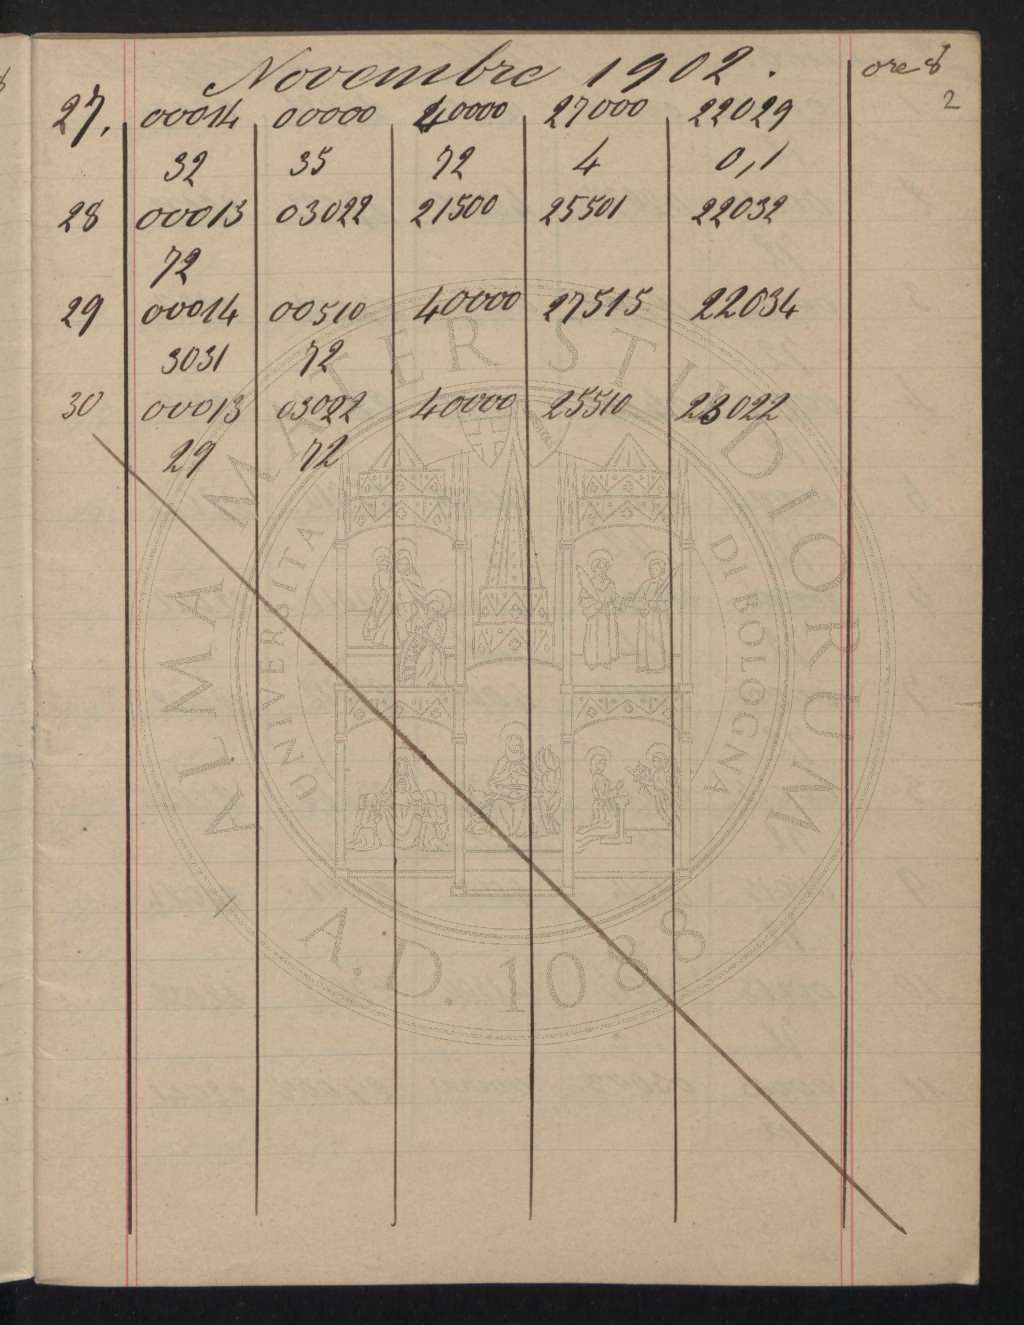 Novembre 1902. ore 8
2
27, 00014 00000 40000 27000 22029
32 35 72 4 0,1
28 00013 03022 21500 25501 22032
72
29 00014 00510 40000 27515 22034
3031 72
30 00013 03022 40000 25510 23022
29 72
ALMA MATER STUDIORUM
UNIVERSITA DI BOLOGNA
A.D. 1088